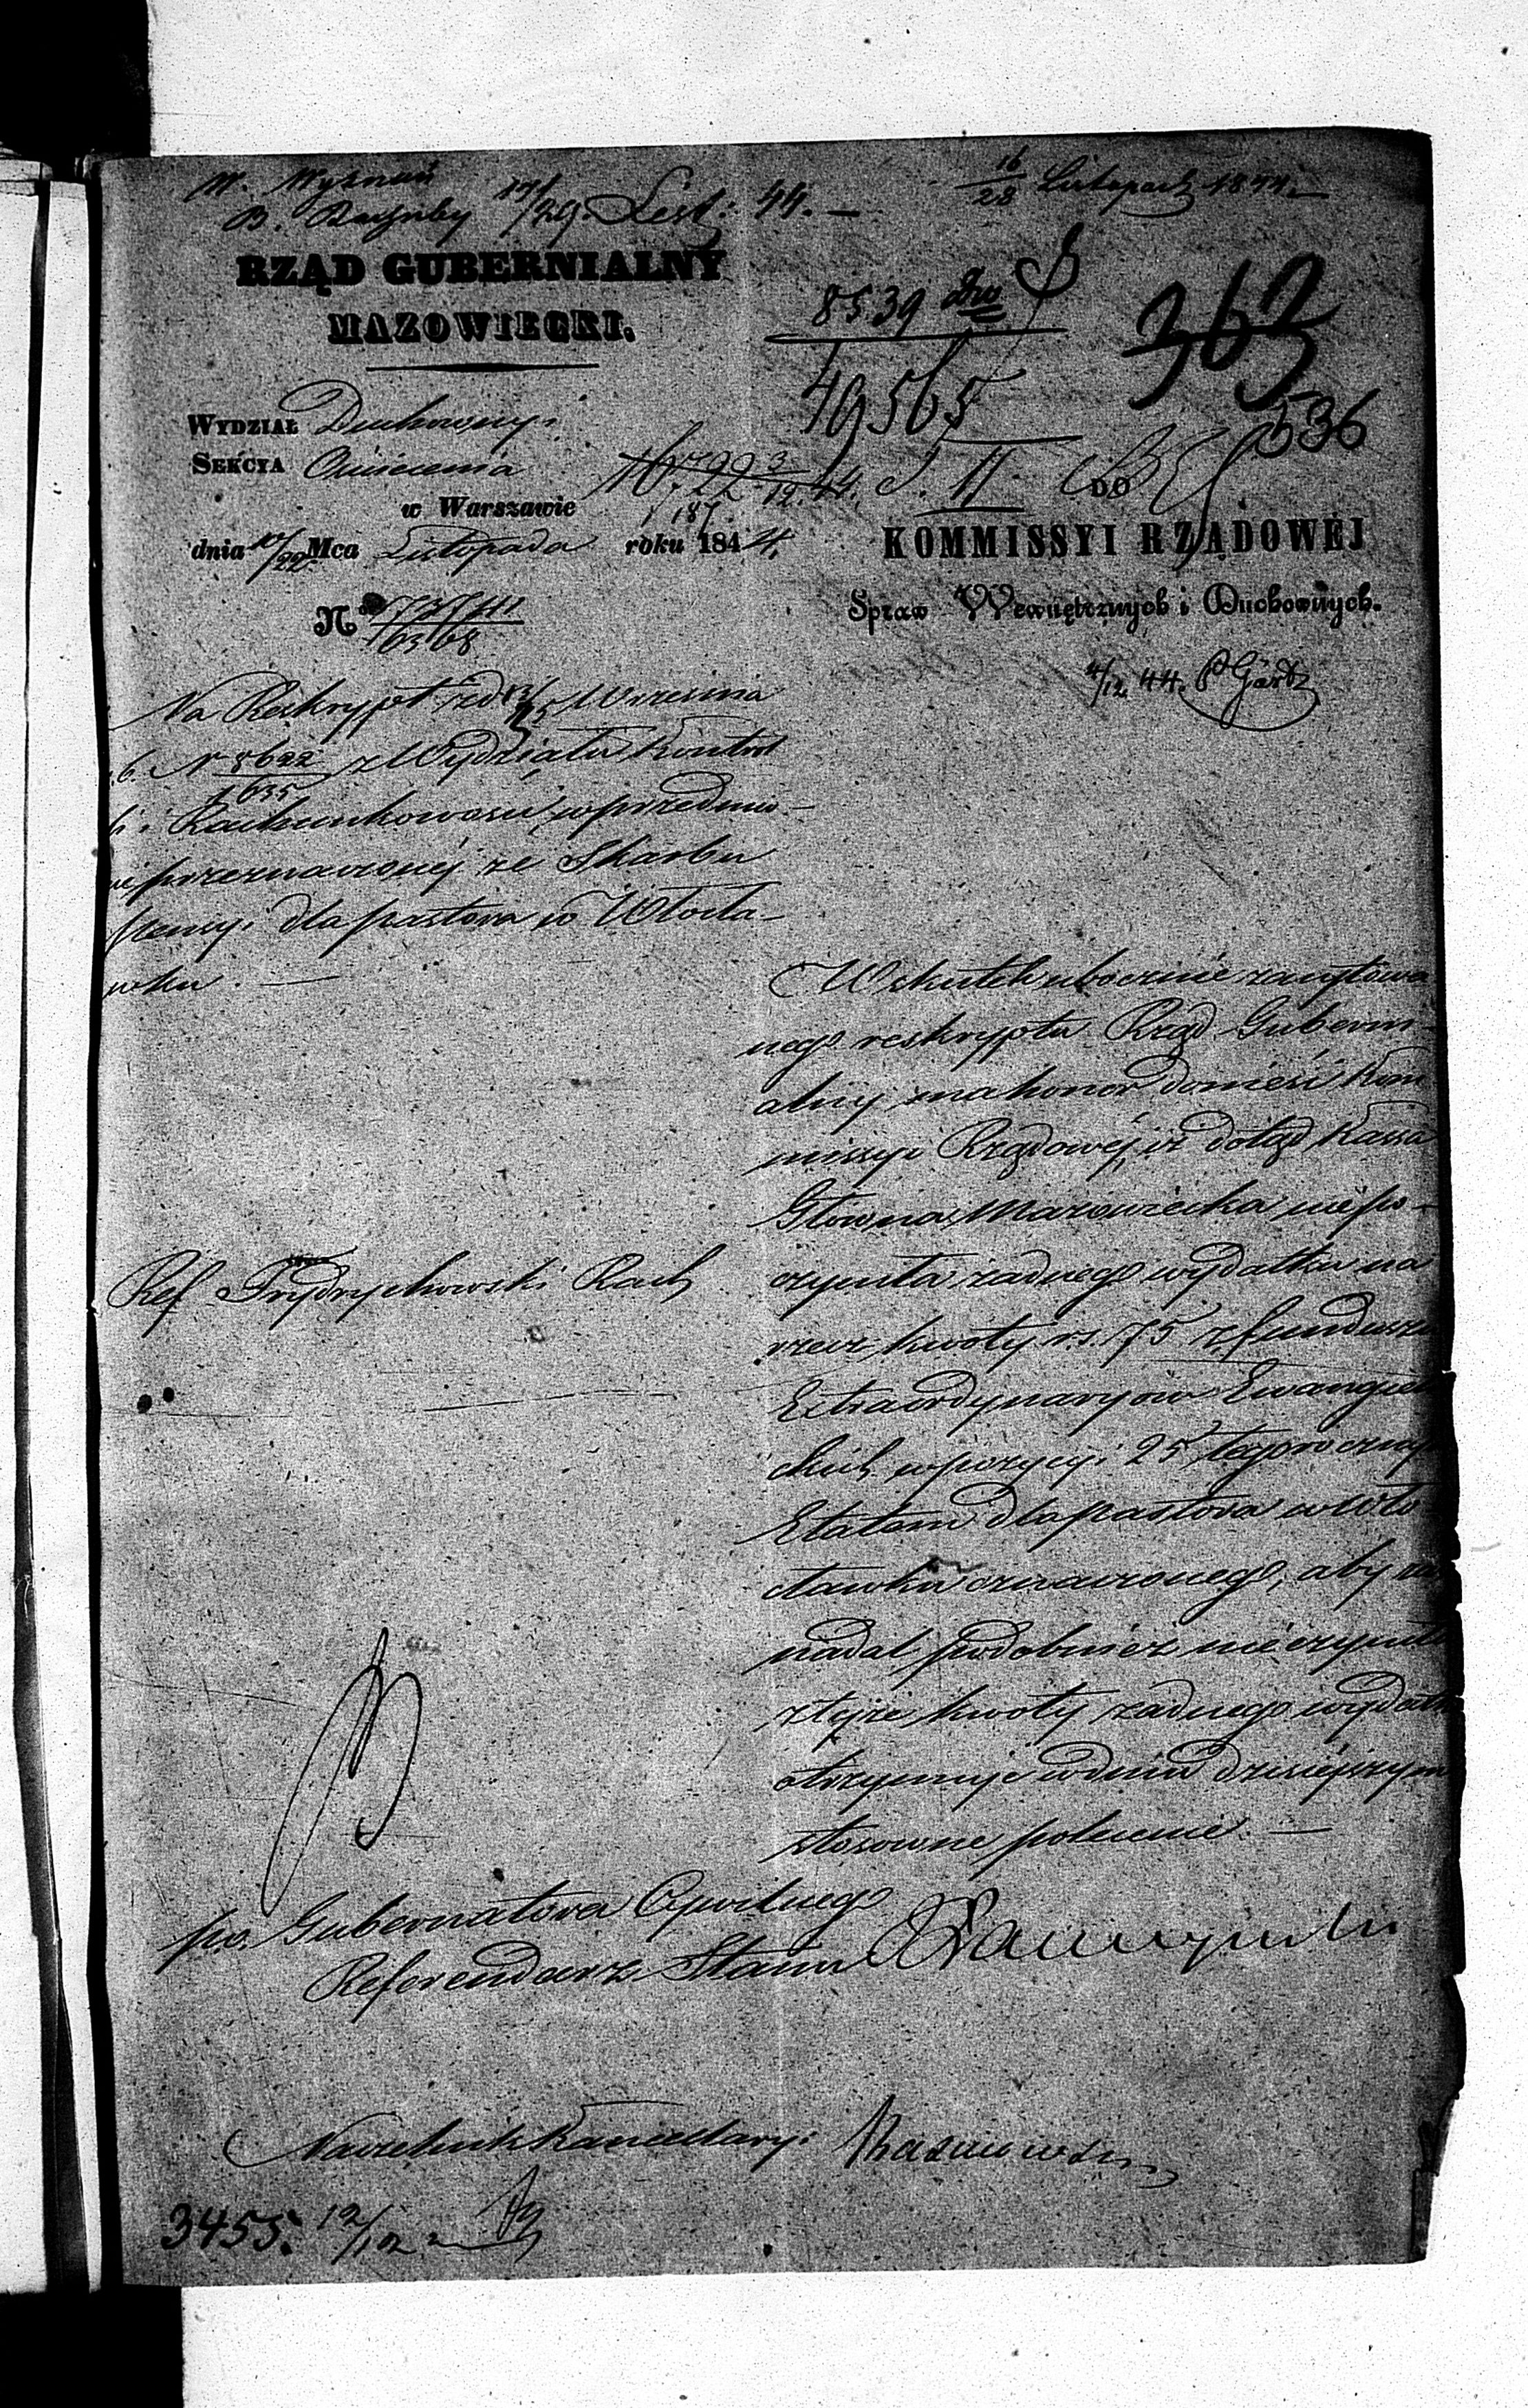 W. Wyznań
17/29 List: 44. —
16/28 Listopada 1844. —
RZĄD GUBERNIALNY
MAZOWIECKI.
8539
363
49565
536
WYDZIAŁ Duchowny.
SEKCYA Oświecenia
w Warszawie
dnia 10/22 Mca Listopada roku 1844.
DO
KOMMISSYI RZĄDOWÉJ
Spraw Wewnętrznych i Duchownych.
4/12 44.
Na Reskrypt z d 13/25 Września
N 8622/1635 z Wydziału Kontrol
i Rachunkowości w przedmio-
przeznaczonéj ze Skarbu
pensyi dla pastora w Włocła-
wku. —
W skutek ubocznie zacytowa
nego reskryptu Rząd Guberni-
alny ma honor donieść Kom
missyi Rządowéj, iż dotąd Kassa
Główna Mazowiecka niepo-
czyniła żadnego wydatku na
rzecz kwoty r.s. 75 z funduszu
Extraordynaryów Ewangieli
ckich w pozycyi 25 tegorocznym
Etatem dla pastora w Wło
cławku oznaczonego, aby na
nadal podobnież nieczyniła
z tejże kwoty żadnego wydatk
otrzymuje w dniu dzisiejszym
stosowne polecenie. —
Ref Frydrychowski Rach
p.o. Gubernatora Cywilnego
Referendarz Stanu
Naczelnik Kancellaryi
3455. 12/12